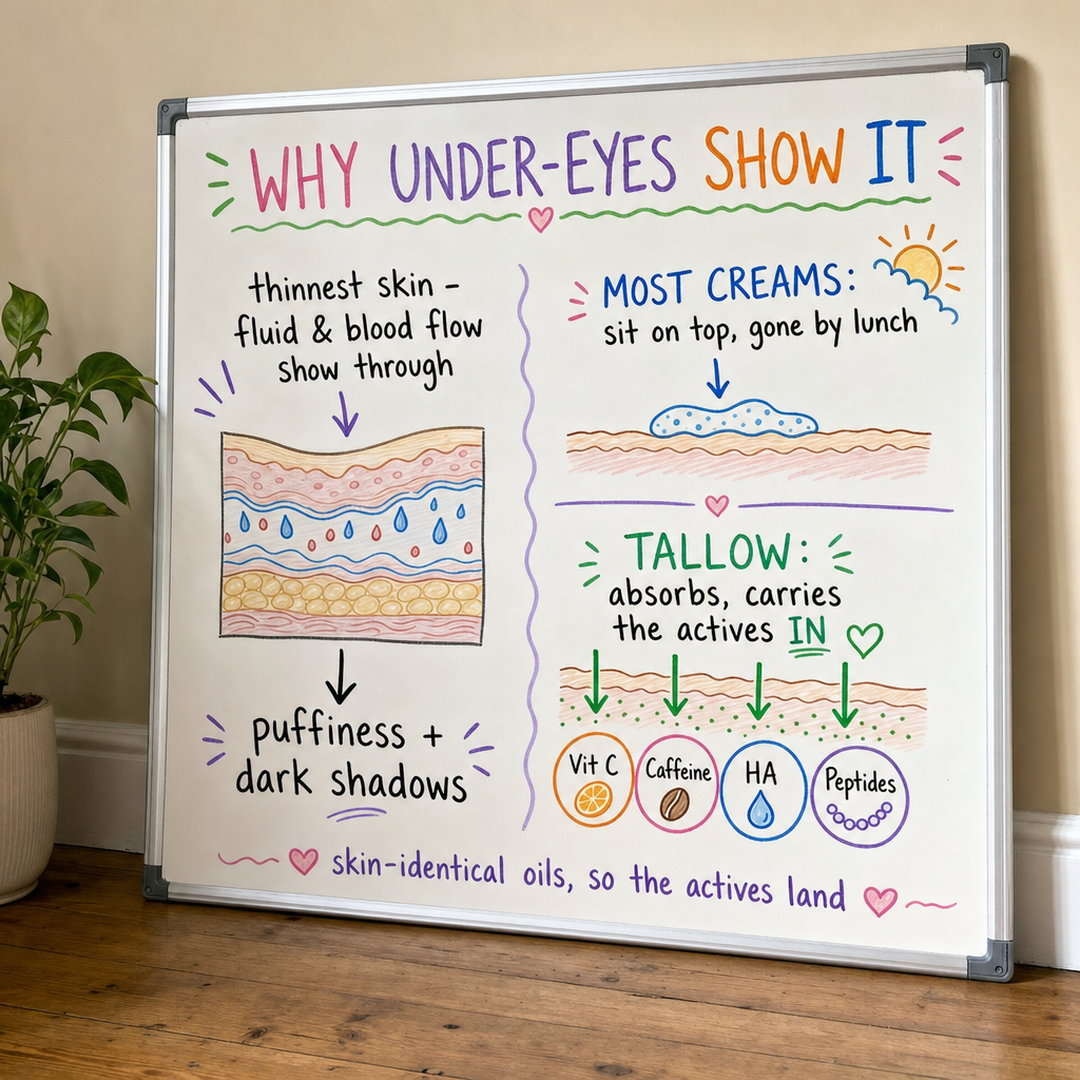 WHY UNDER-EYES SHOW IT
thinnest skin –
fluid & blood flow
show through
puffiness +
dark shadows
MOST CREAMS:
sit on top, gone by lunch
TALLOW:
absorbs, carries
the actives IN
Vit C
Caffeine
HA
Peptides
skin-identical oils, so the actives land